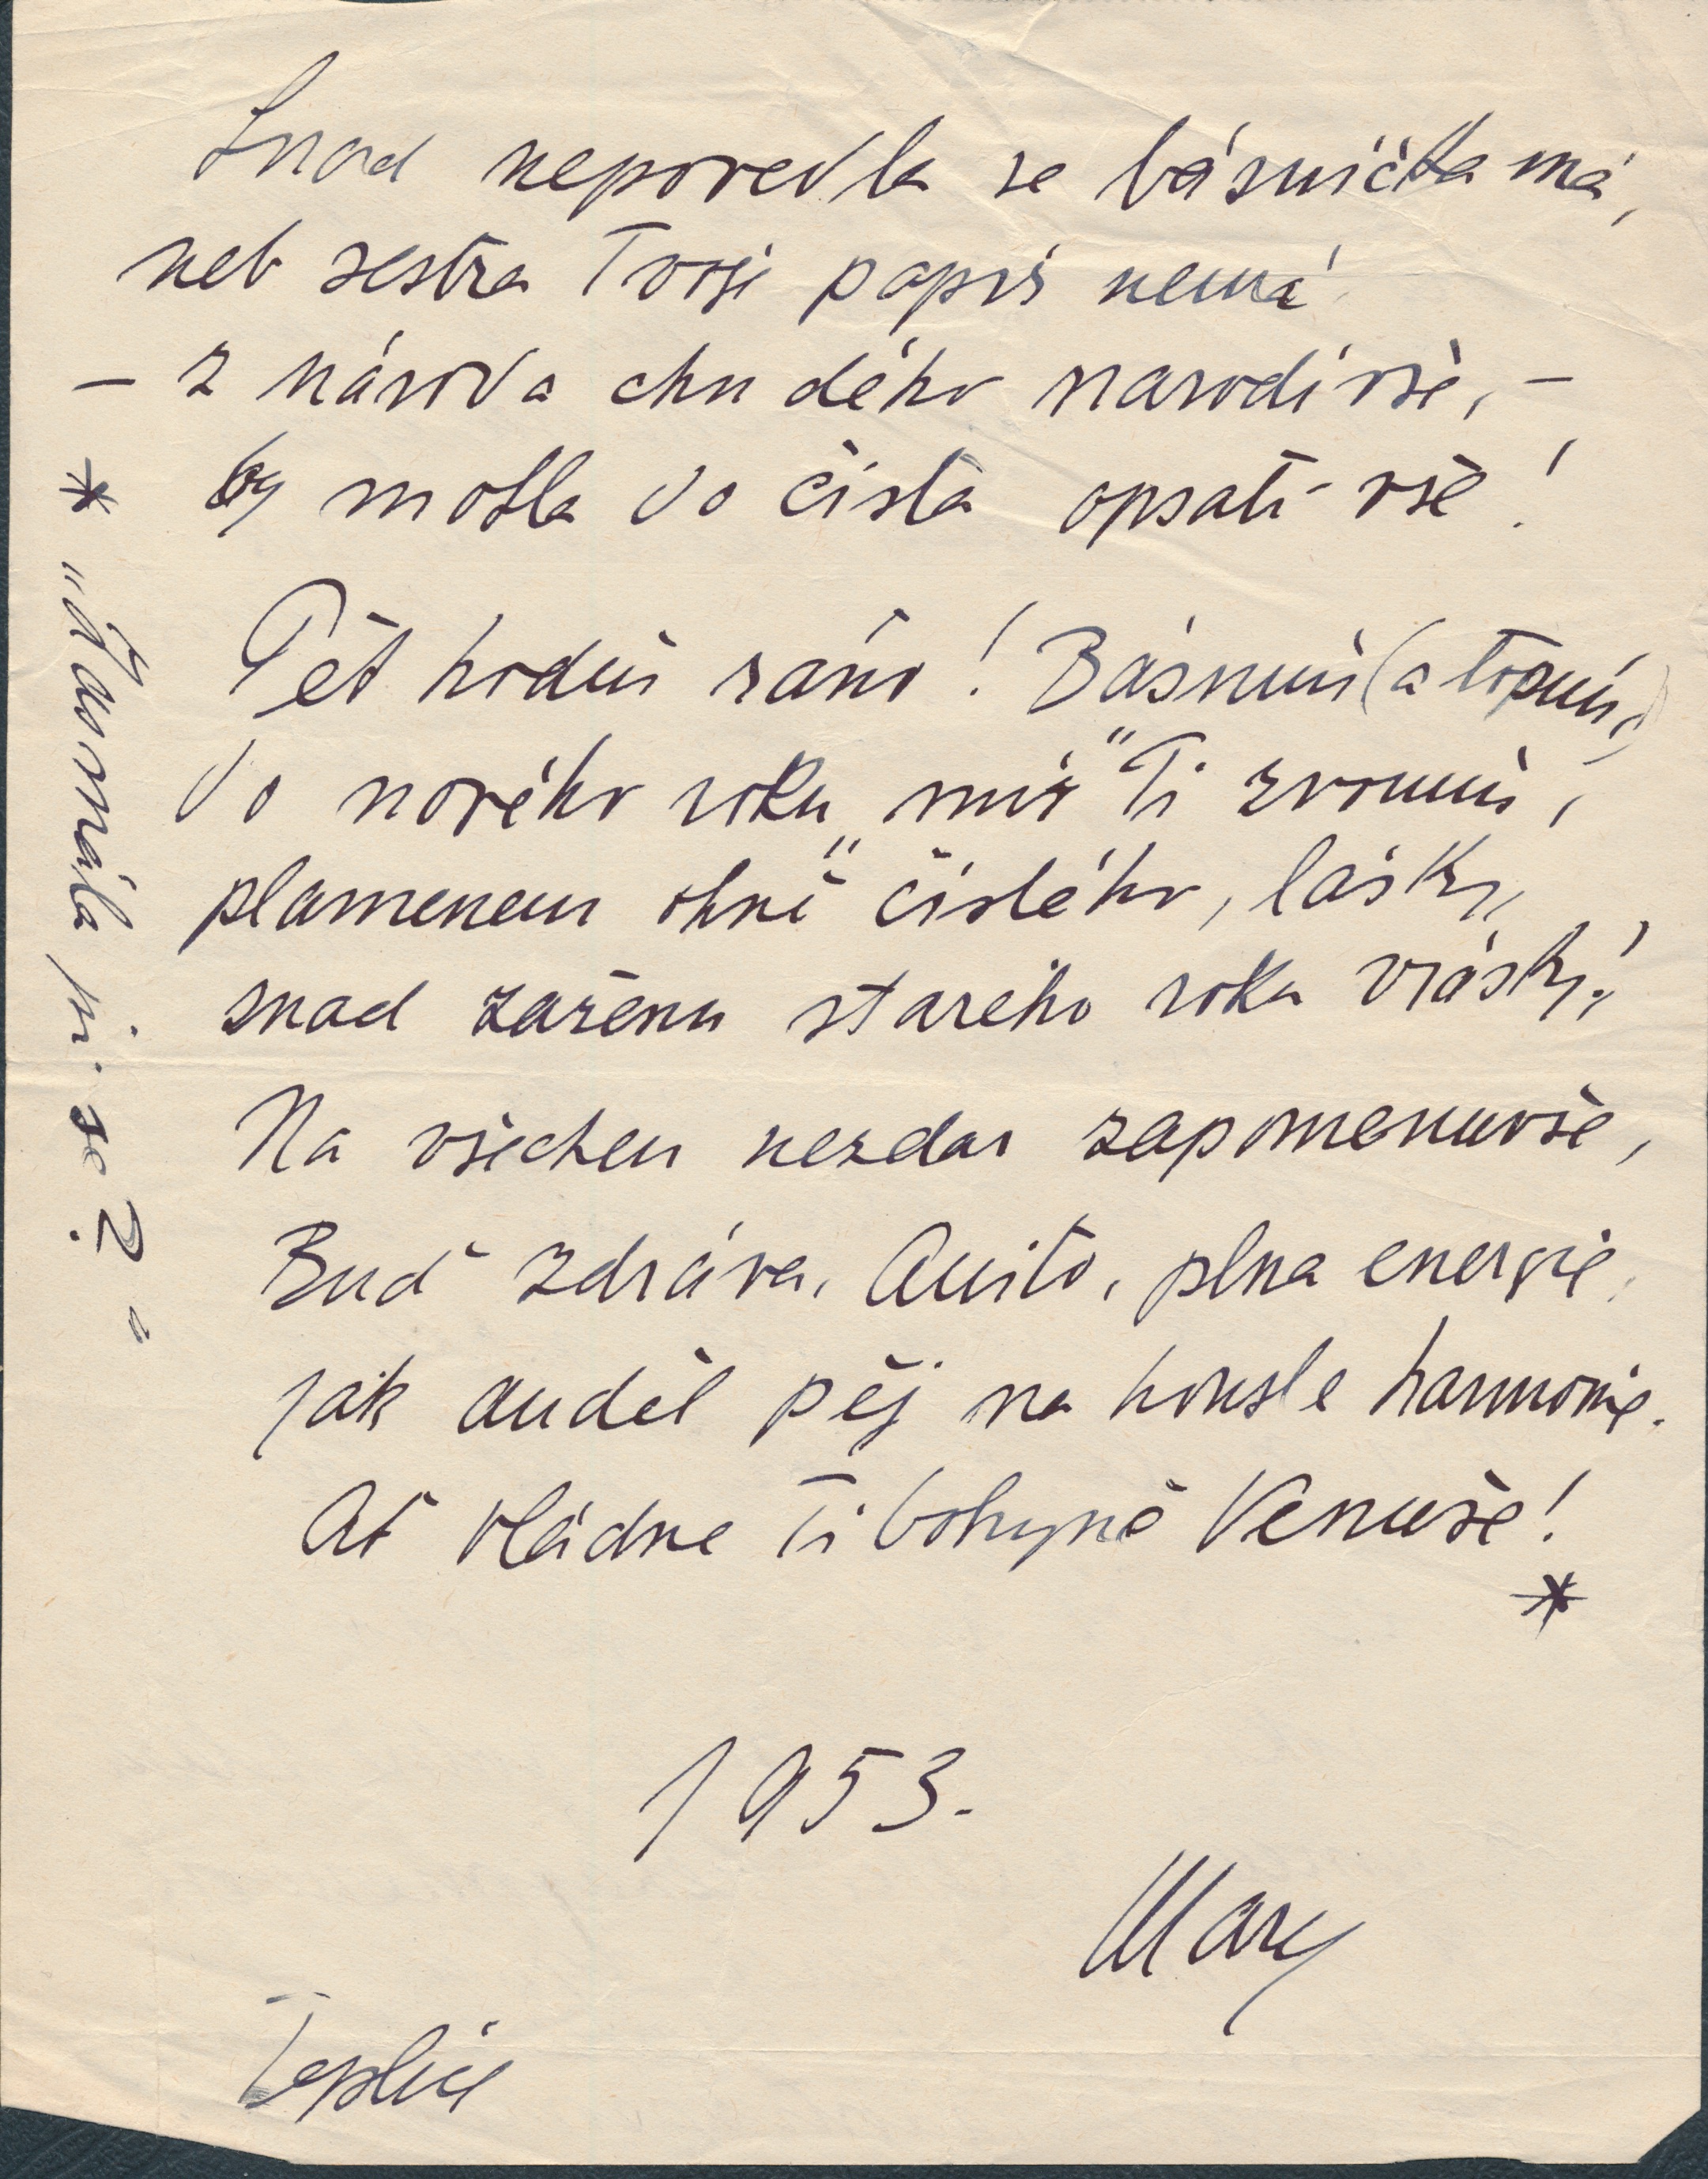 Snad nepovedla se básnička má,
neb sestra Tvoje papír nemá
– z národa chudého narodivši, –
by mohla do čista opsati vše!
Pět hodin ráno! Básním (a topím)
do nového roku „mír“ Ti zvoním,
plamenem ohně „čistého, lásky“
snad zaženu starého roku vrásky!
Na všechen nezdar zapomenuvše,
Buď zdráva, Anito, plna energie,
jak anděl pěj na housle harmonie.
Ať vládne Ti bohyně Venuše!
*
1953.
Mary
Teplice
* „Kasmála jsi se?“